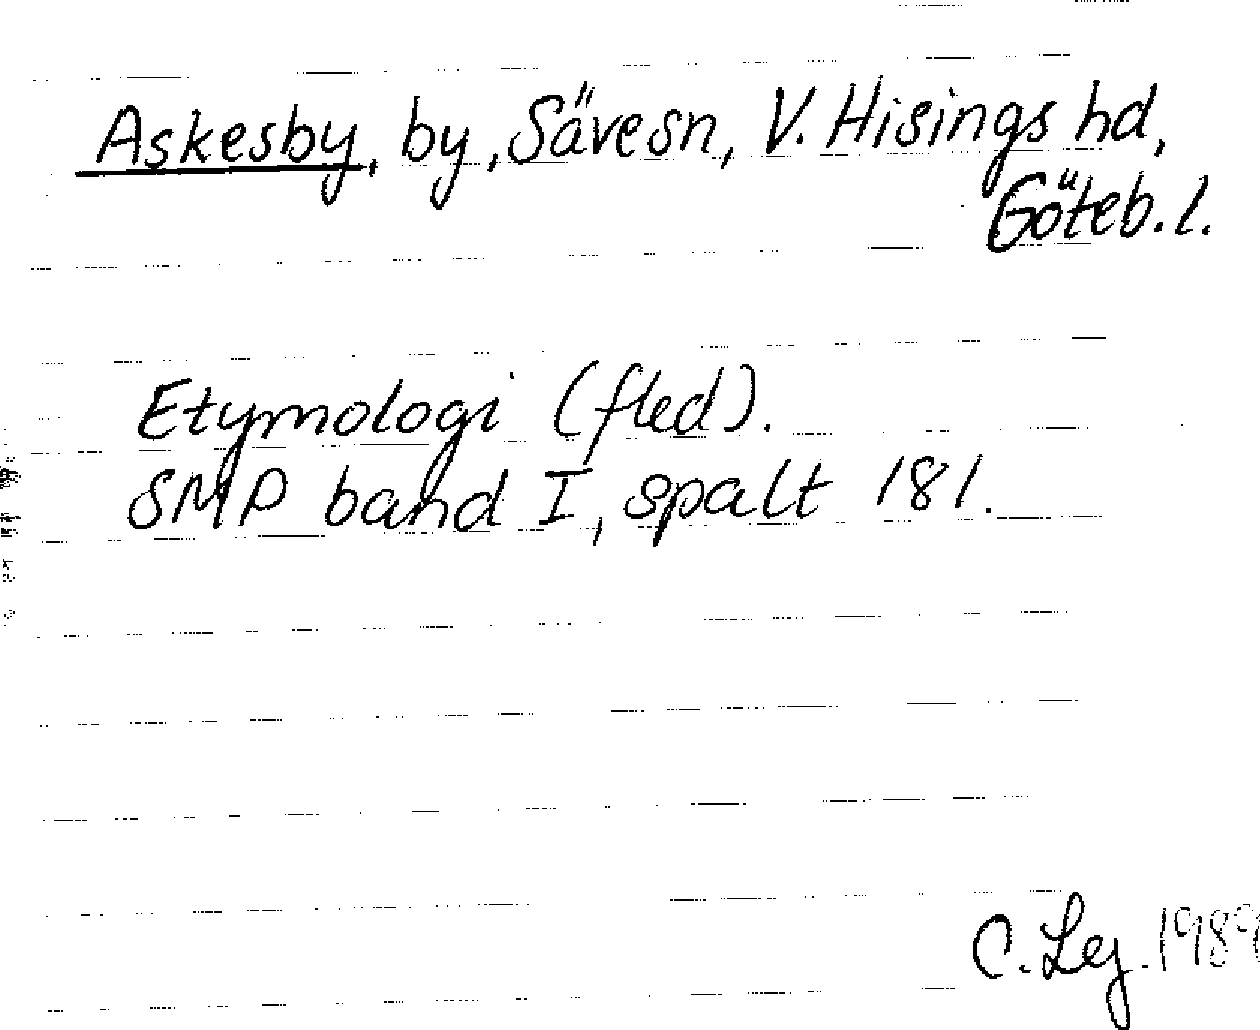 Askesby, by, Sävesn, V. Hisings hd,
Göteb. l.
Etymologi (fled).
SMP band I, spalt 181.
C. Lej. 1989